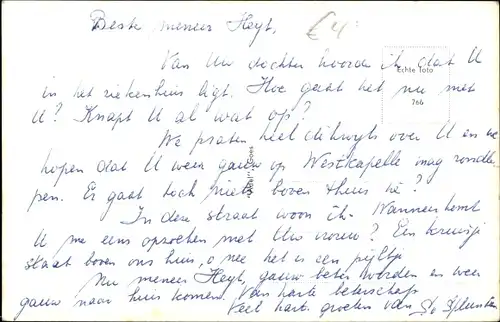 Beste meneer Heyt,
€ 4
Van Uw dochter hoorde ik dat U
Echte foto
in het ziekenhuis ligt. Hoe gaat het nu met
766
U? Knapt U al wat op?
We praten heel dikwijls over U en we
hopen dat U weer gauw op Westkapelle mag rondlo-
pen. Er gaat toch niets boven thuis hè?
In deze straat woon ik. Wanneer komt
U me eens opzoeken met Uw vrouw? Een kruisje
staat boven ons huis, o nee het is een pijltje
Nu meneer Heyt, gauw beter worden en weer
gauw naar huis komen. Van harte beterschap
Veel hart. groeten van